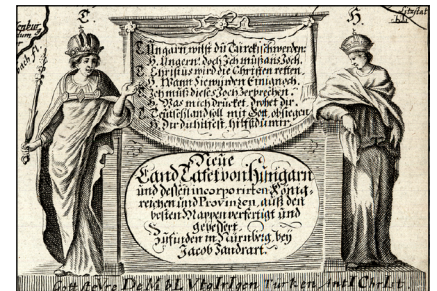 T.
H.
T. Ungarn, wilst du Türckisch werden:
H. Ungern: doch Zeh müß ans Joch.
T. Christus wird die Christen retten,
H. Wann Sie würden Einig noch.
T. Ich muß dieses Joch zerbrechen.
H. Was mich drücket, drohet dir.
T. Teutschland soll mit Gott obsiegen,
H. Dir du hilfst, hilfstu mir.
Neüe
Land Tafel von Hungarn
und dessen incorporirten König-
reichen und Provinzen, auß den
besten Mappen verfertigt und
gebessert.
Zufinden in Nürnberg, beÿ
Jacob Sandrart.
Türken AntIChrIst